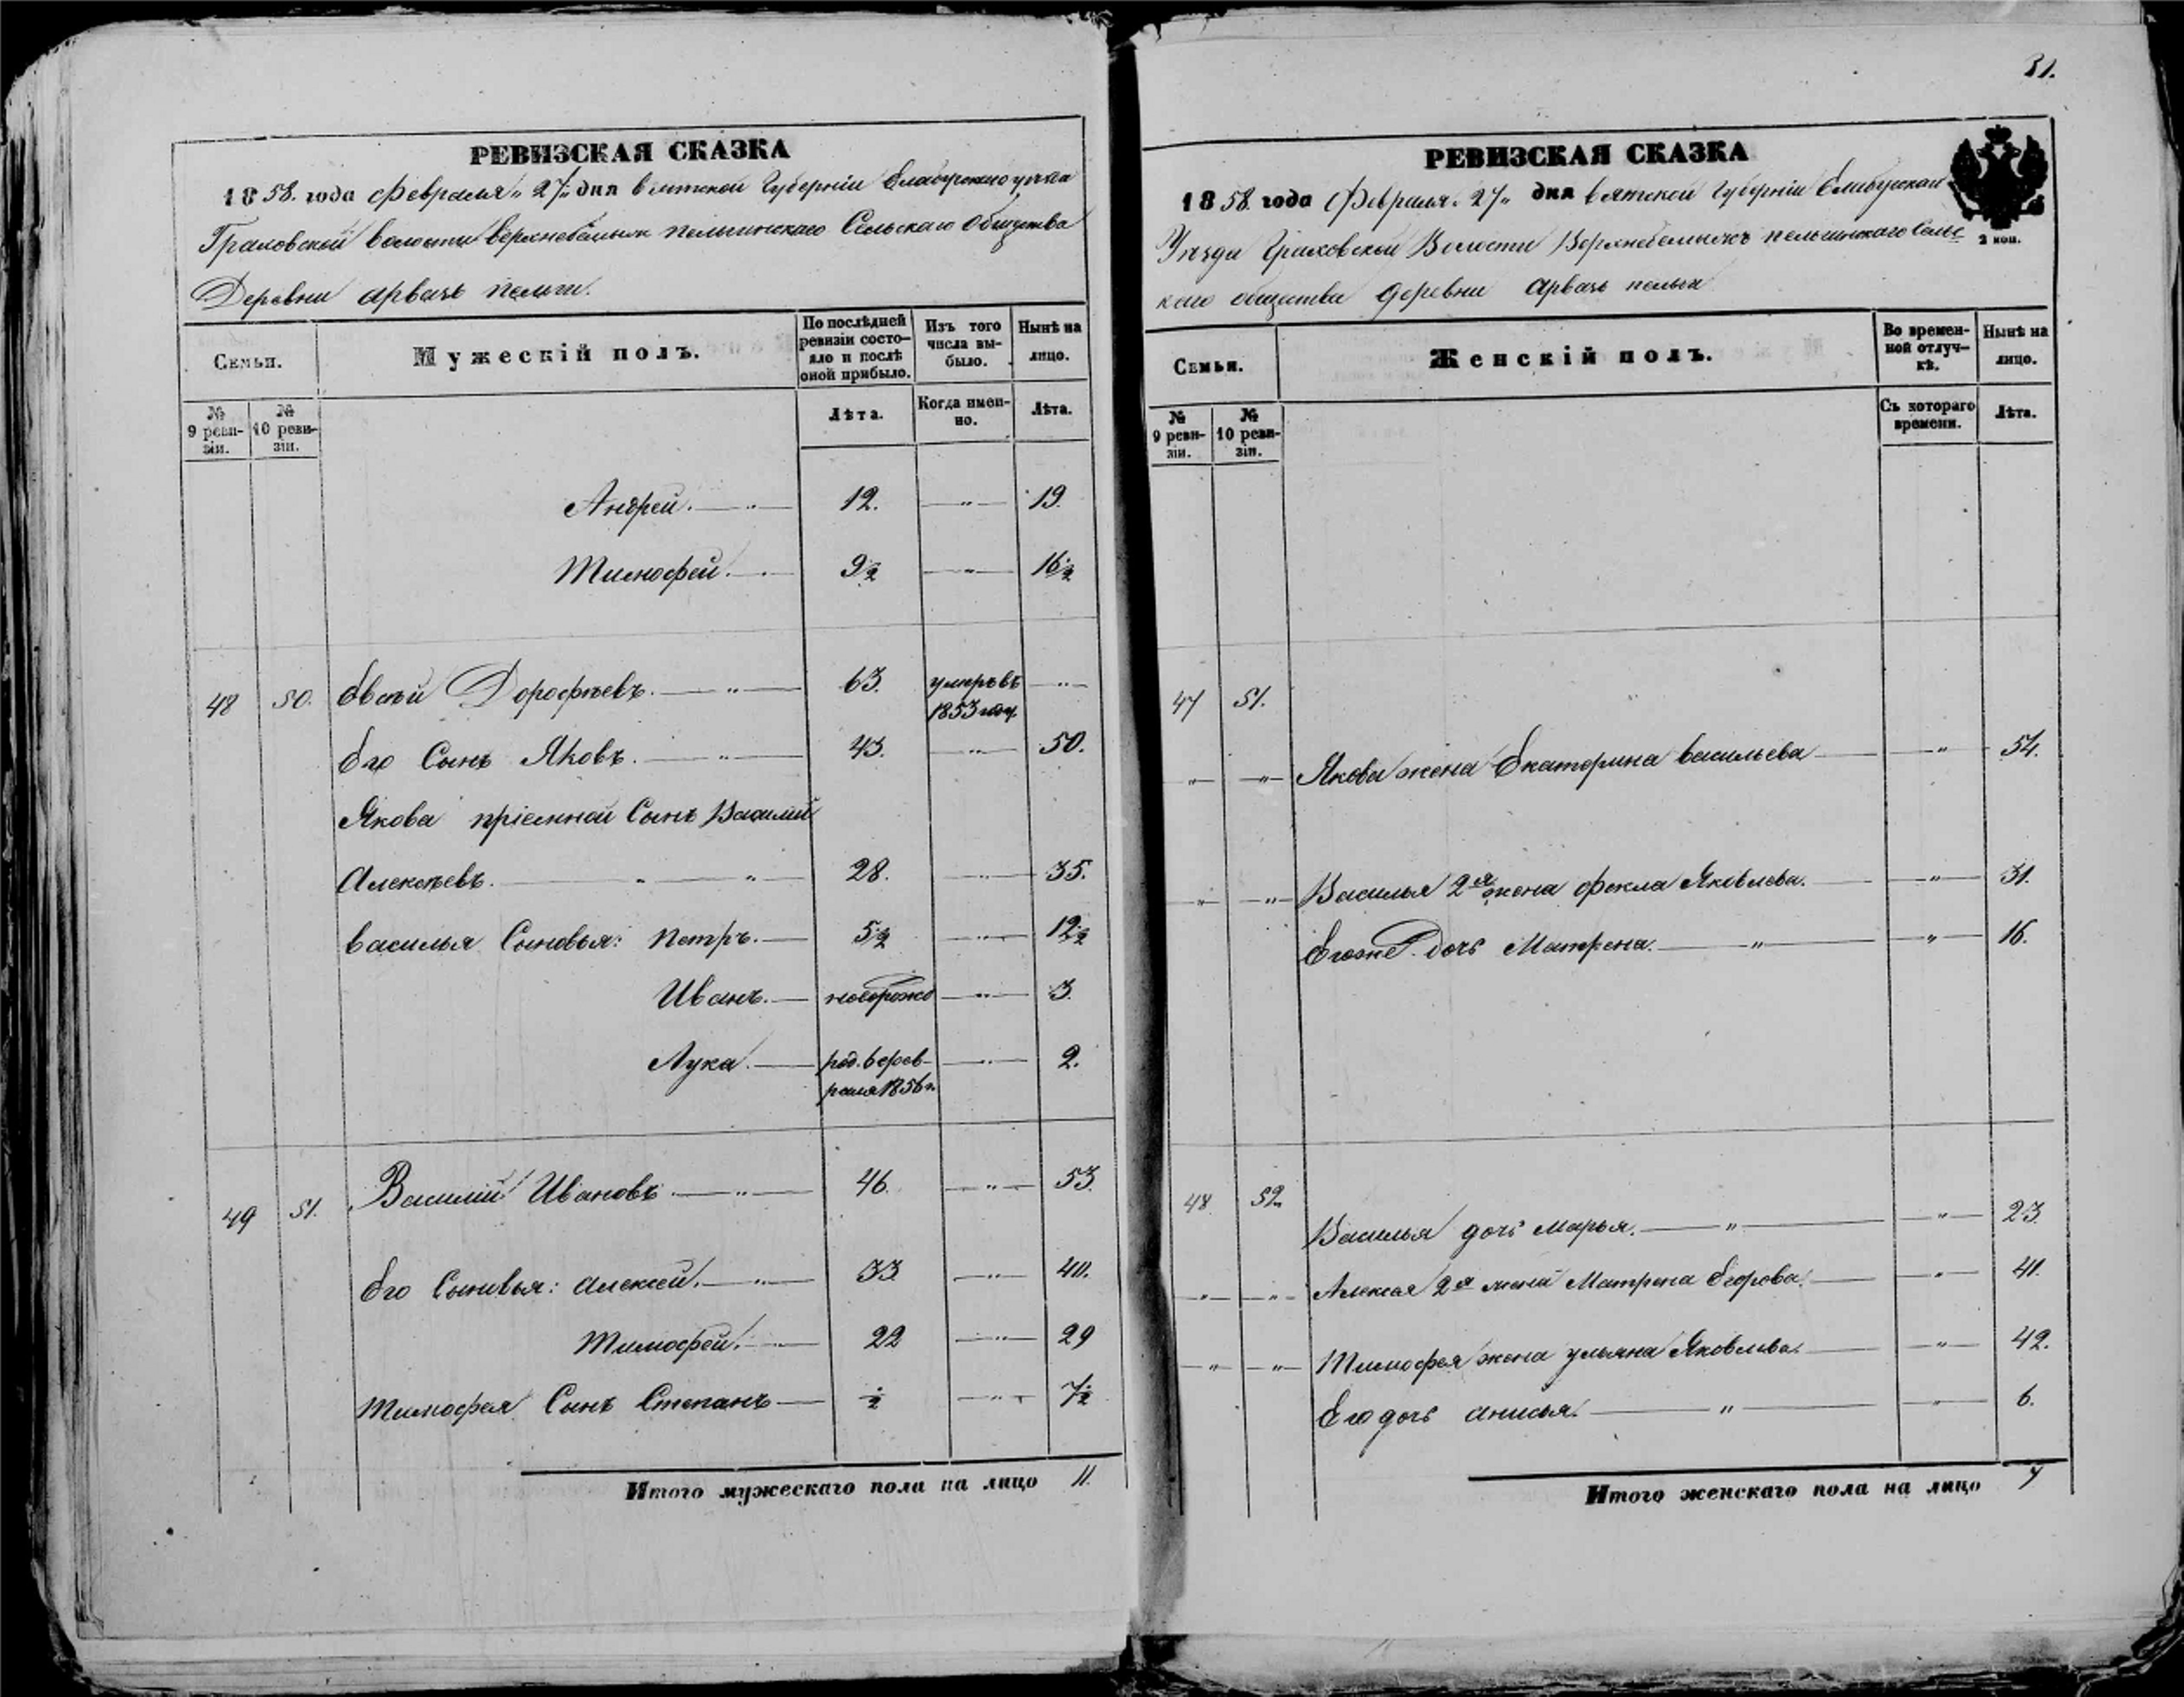 РЕВИЗСКАЯ СКАЗКА
1858. года Февраля „27„ дня Вятской Губерніи Елабугскаго уѣзда
Граховской волости Верхнебемыжъ пельгинскаго Сельскаго Общества
Деревни Арвазь пельги.
Семьи.
Мужескій полъ.
По послѣдней ревизіи состояло и послѣ оной прибыло.
Изъ того числа выбыло.
Нынѣ на лицо.
№ 9 ревизіи.
№ 10 ревизіи.
Лѣта.
Когда именно.
Лѣта.
Андрей. 12. „ 19.
Тимофей. 9½ „ 16½
48 50. Евсѣй Дорофѣевъ. „ 63. умеръ въ 1853 году „
Его Сынъ Яковъ. „ 43. „ 50.
Якова пріемной Сынъ Василий
Алексѣевъ. „ „ 28. „ 35.
Василья Сыновья: Петръ. 5½ „ 12½
Иванъ. новорожд „ 3.
Лука. род. въ февраля 1856 г. „ 2.
49 51. Василий Ивановъ „ 46. „ 53.
Его Сыновья: Алексей. „ 33. „ 40.
Тимофей. „ 22 „ 29
Тимофея Сынъ Степанъ ½ „ 7½
Итого мужескаго пола на лицо 11.
31.
РЕВИЗСКАЯ СКАЗКА
1858. года Февраля „27„ дня Вятской Губерніи Елабугскаго
Уѣзда Граховской Волости Верхнебемыжъ пельгинскаго Сельс
каго общества деревни Арвазь пельги
2 коп.
Семьи.
Женскій полъ.
Во временной отлучкѣ.
Нынѣ на лицо.
№ 9 ревизіи.
№ 10 ревизіи.
Съ котораго времени.
Лѣта.
47 51.
„ „ Якова жена Екатерина Васильева „ 54.
„ „ Василья 2я жена Фекла Яковлева. „ 31.
Егоже дочь Матрена. „ „ 16.
48. 52. Василья дочь Марья. „ „ 23.
„ „ Алексея 2я жена Матрена Егорова. „ 41.
„ „ Тимофея жена Ульяна Яковлева. „ 42.
Его дочь Анисья. „ „ 6.
Итого женскаго пола на лицо 7